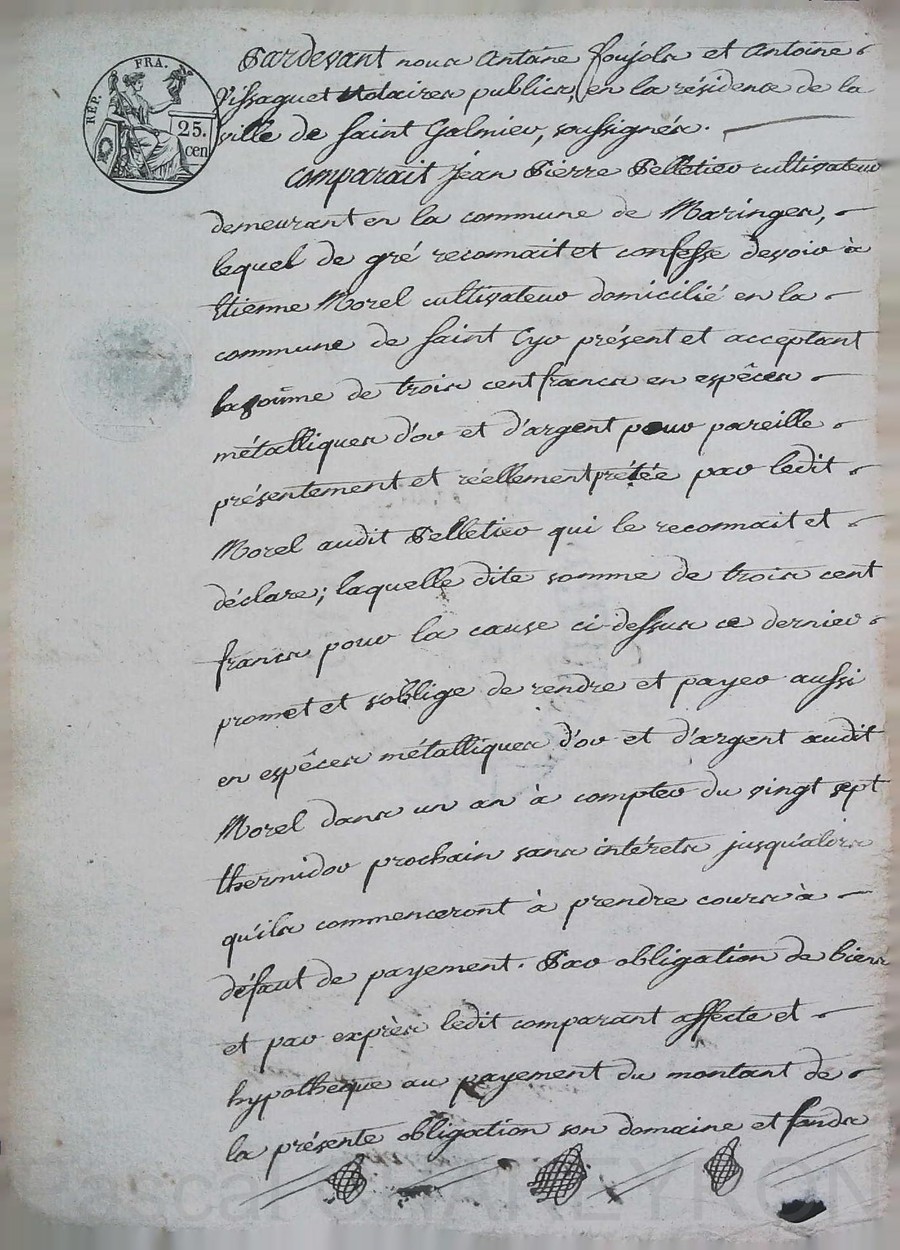 RÉP. FRA.
25.
cen
Pardevant nous Antoine Foujols et Antoine
Vissaguet Notaires publics, en la résidence de la
ville de Saint Galmier, soussignés.
comparait Jean Pierre Pelletier cultivateur
demeurant en la commune de Maringes,
lequel de gré reconnait et confesse devoir à
Etienne Morel cultivateur domicilié en la
commune de Saint Cyr présent et acceptant
la som̃e de trois cent francs en espêces
métalliques d'or et d'argent pour pareille
présentement et réellement prêtée par ledit
Morel audit Pelletier qui le reconnait et
déclare; laquelle dite somme de trois cent
francs pour la cause ci-dessus ce dernier
promet et s'oblige de rendre et payer aussi
en espêces métalliques d'or et d'argent audit
Morel dans un an à compter du vingt sept
thermidor prochain sans intérets jusqu'alors
qu'ils commenceront à prendre cours à
défaut de payement. Par obligation de biens
et par exprès ledit comparant affecte et
hypothèque au payement du montant de
la présente obligation son domaine et fonds